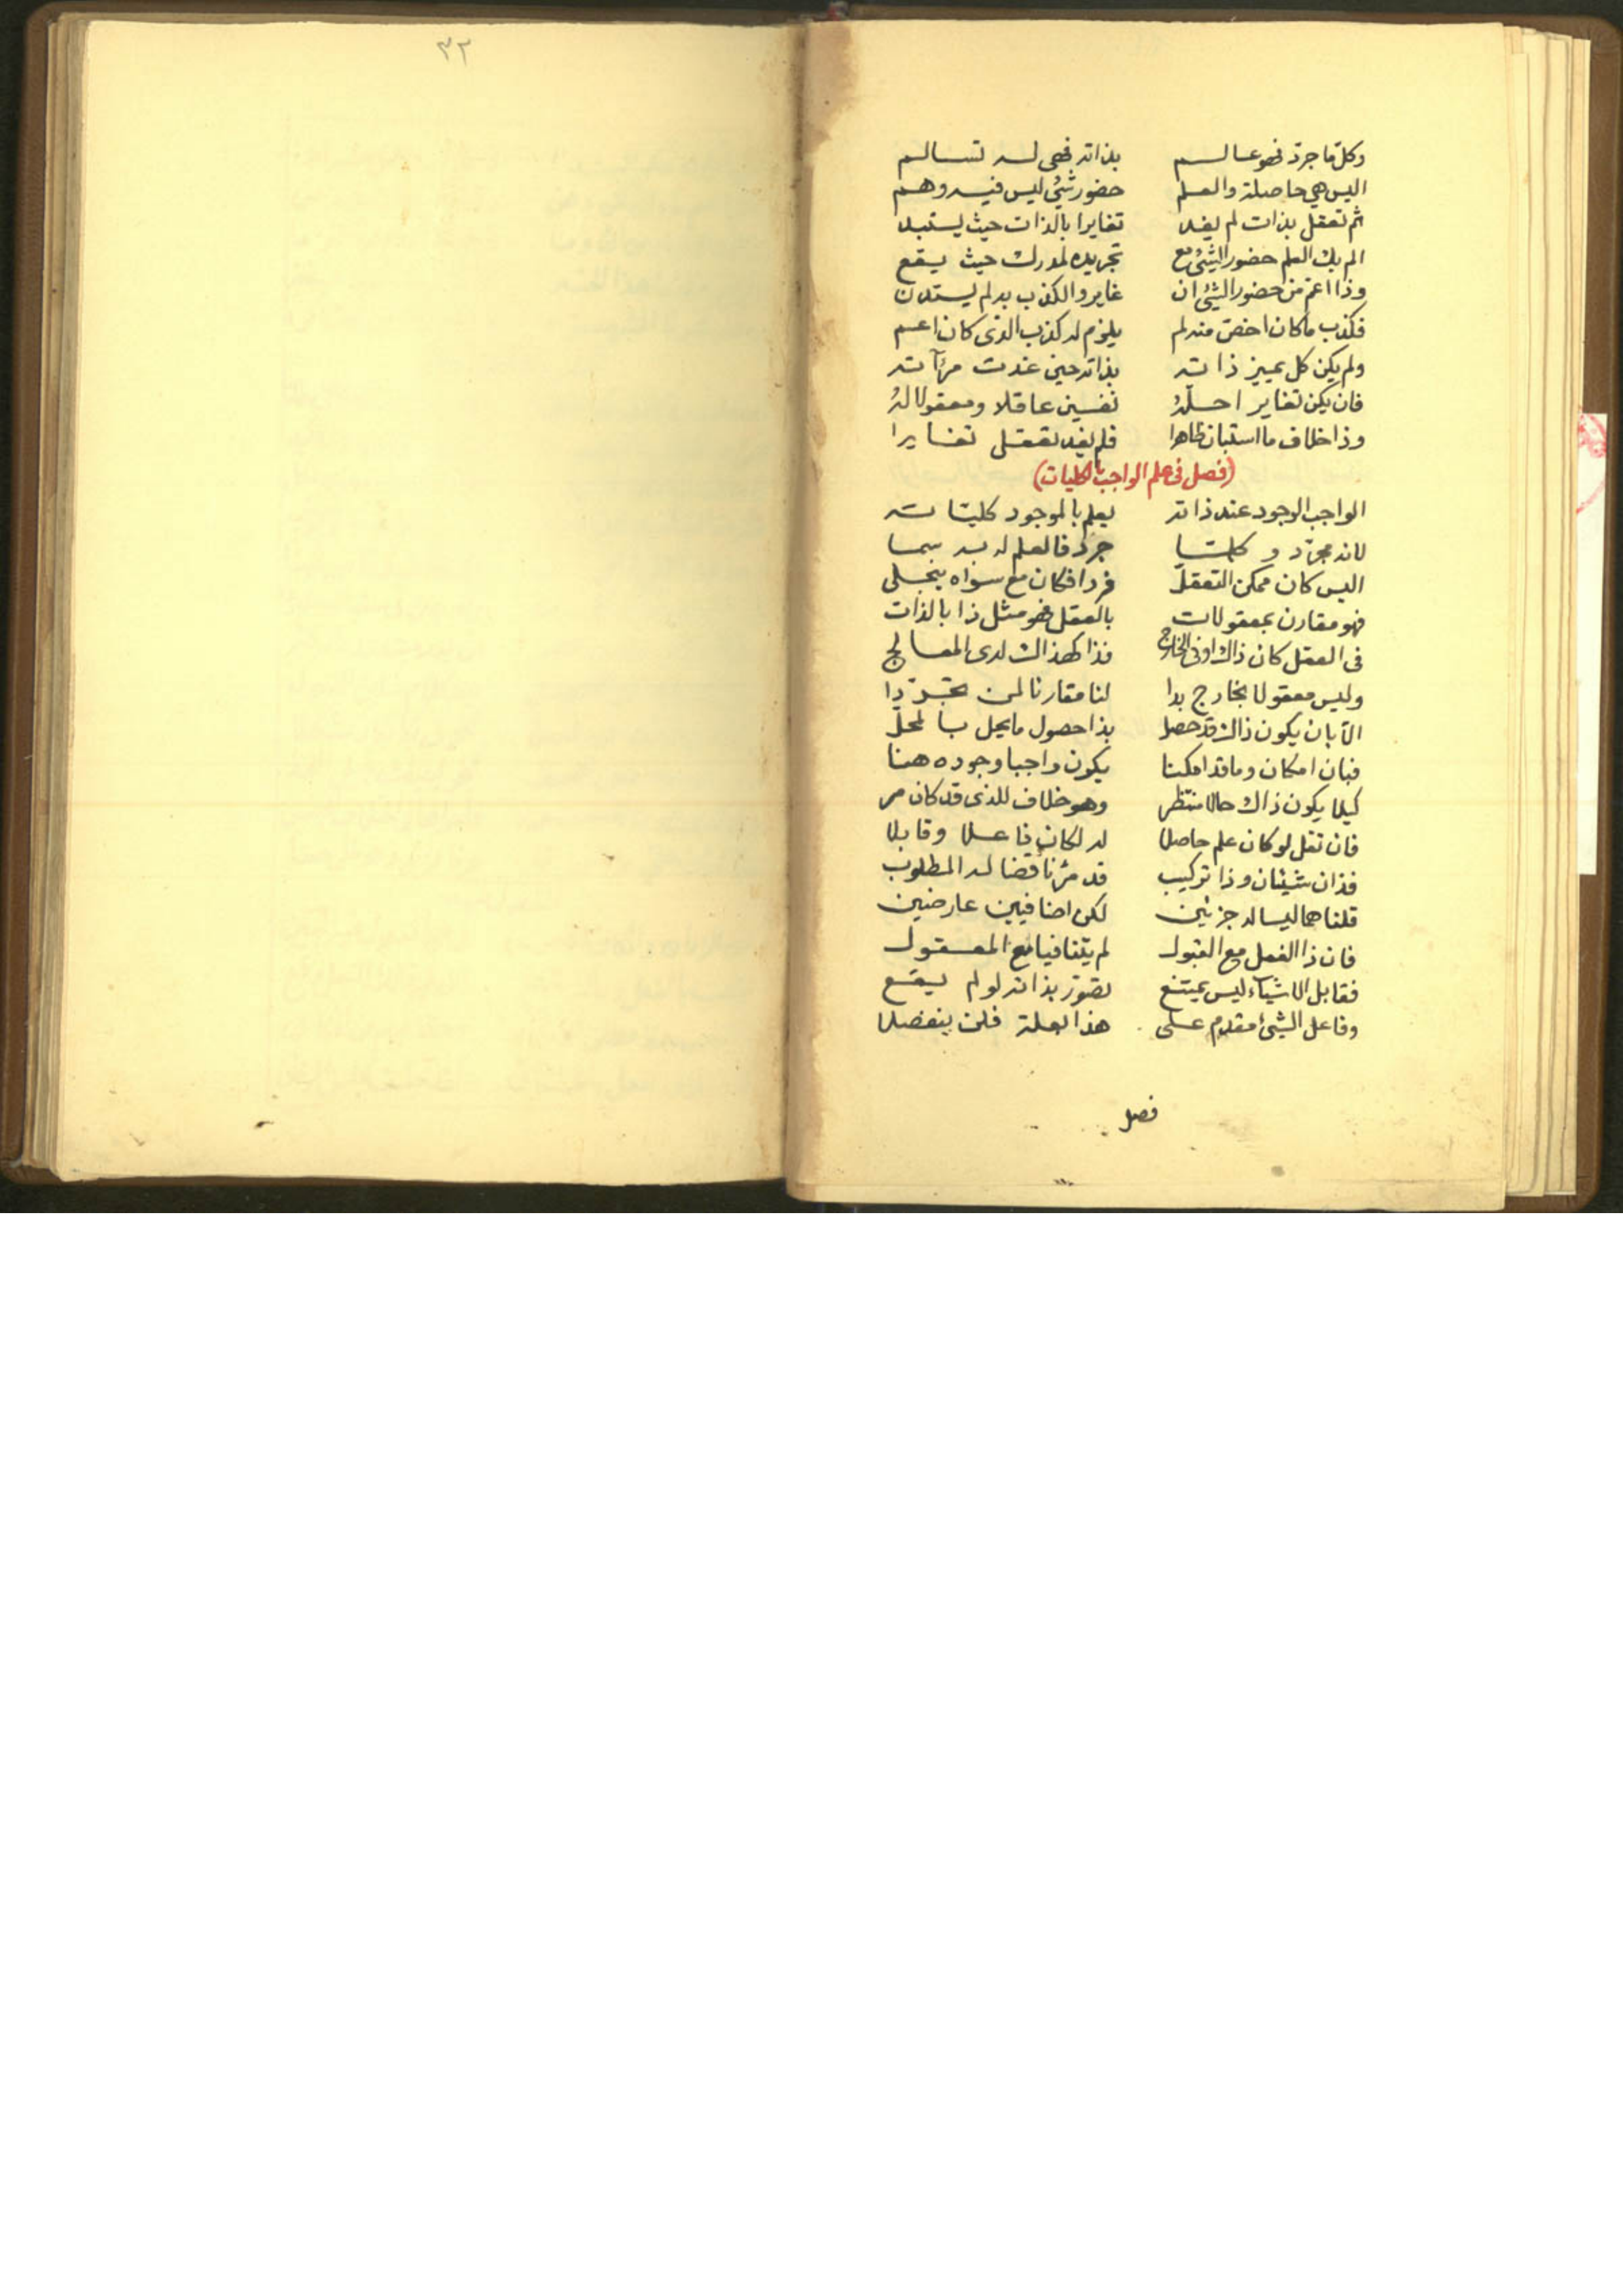 ٣٢
وكل ما جرد فهو عالم بذاته فهى له تسالم
اليس هي حاصلة والعلم حضور شيئ ليس فيه وهم
ثم تعقل بذات لم يفد تغايرا بالذات حيث يستبد
الم يك العلم حضور الشيئ مع تجريده لمدرك حيث يقع
وذا اعم من حضور الشيئ ان غاير والكذب به لم يستدن
فكذب ما كان اخص منه لم يلزم له كذب الذى كان اعم
ولم يكن كل يميز ذاته بذاته حين غدت مرآته
فان يكن تغاير احله نفسين عاقلا ومعقولا له
وذا خلاف ما استبان ظاهرا فلم يفد تعقل تغايرا
(فصل فى علم الواجب بالكليات)
الواجب الوجود عند ذاته يعلم بالموجود كلياته
لانه مجرد و كلما جرد فالعلم له به سما
اليس كان ممكن التعقل فردا فكان مع سواه ينجلى
فهو مقارن بمعقولات بالعقل فهو مثل ذا بالذات
فى العقل كان ذاك او فى الخارج فذا كهذاك لدى المعالج
وليس معقولا بخارج بدا لنا مقارنا لمن تجردا
الا بان يكون ذاك قد حصل بذا حصول ما يحل بالمحل
فبان امكان وما قد امكنا يكون واجبا وجوده هنا
كيلا يكون ذاك حالا منتظر وهو خلاف للذى قد كان مر
فان تقل لو كان علم حاصلا له لكان فاعلا وقابلا
فذان شيئان وذا تركيب قد مر ناقضا له المطلوب
قلنا هما ليسا له جزئين لكن اضافيين عارضين
فان ذا الفعل مع القبول لم يتنافيا مع المعقول
فقابل الاشياء ليس يمتنع تصور بذاته لو لم يقع
وفاعل الشيئ مقدم على هذا بعلة فلن ينفصلا
فصل